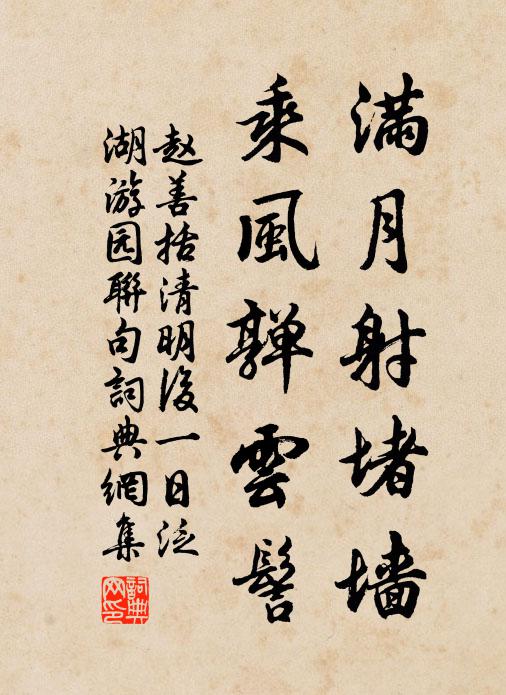 滿月射堵墻
乘風嚲雲髻
赵善括清明後一日泛
湖游园聯句詞典網集
詞典
网印